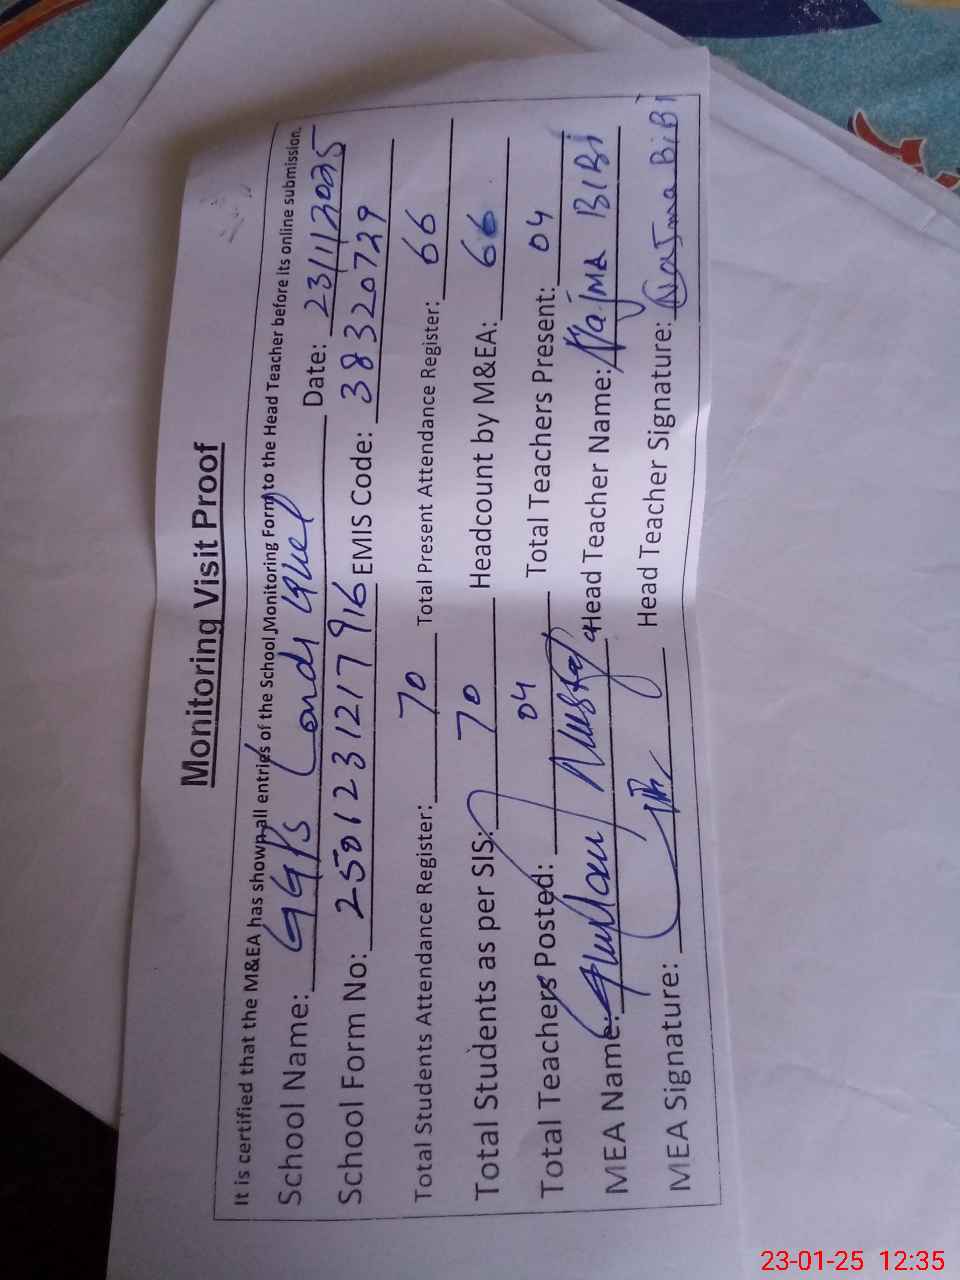 Monitoring Visit Proof
It is certified that the M&EA has shown all entries of the School Monitoring Form to the Head Teacher before its online submission.
School Name: GGPS Londi Date: 23/1/2025
School Form No: 2501231217916 EMIS Code: 38320729
Total Students Attendance Register: 70 Total Present Attendance Register: 66
Total Students as per SIS: 70 Headcount by M&EA: 66
Total Teachers Posted: 04 Total Teachers Present: 04
MEA Name: Ghulam Mustafa Head Teacher Name: Najma BiBi
MEA Signature: Head Teacher Signature: Najma BiBi
23-01-25 12:35